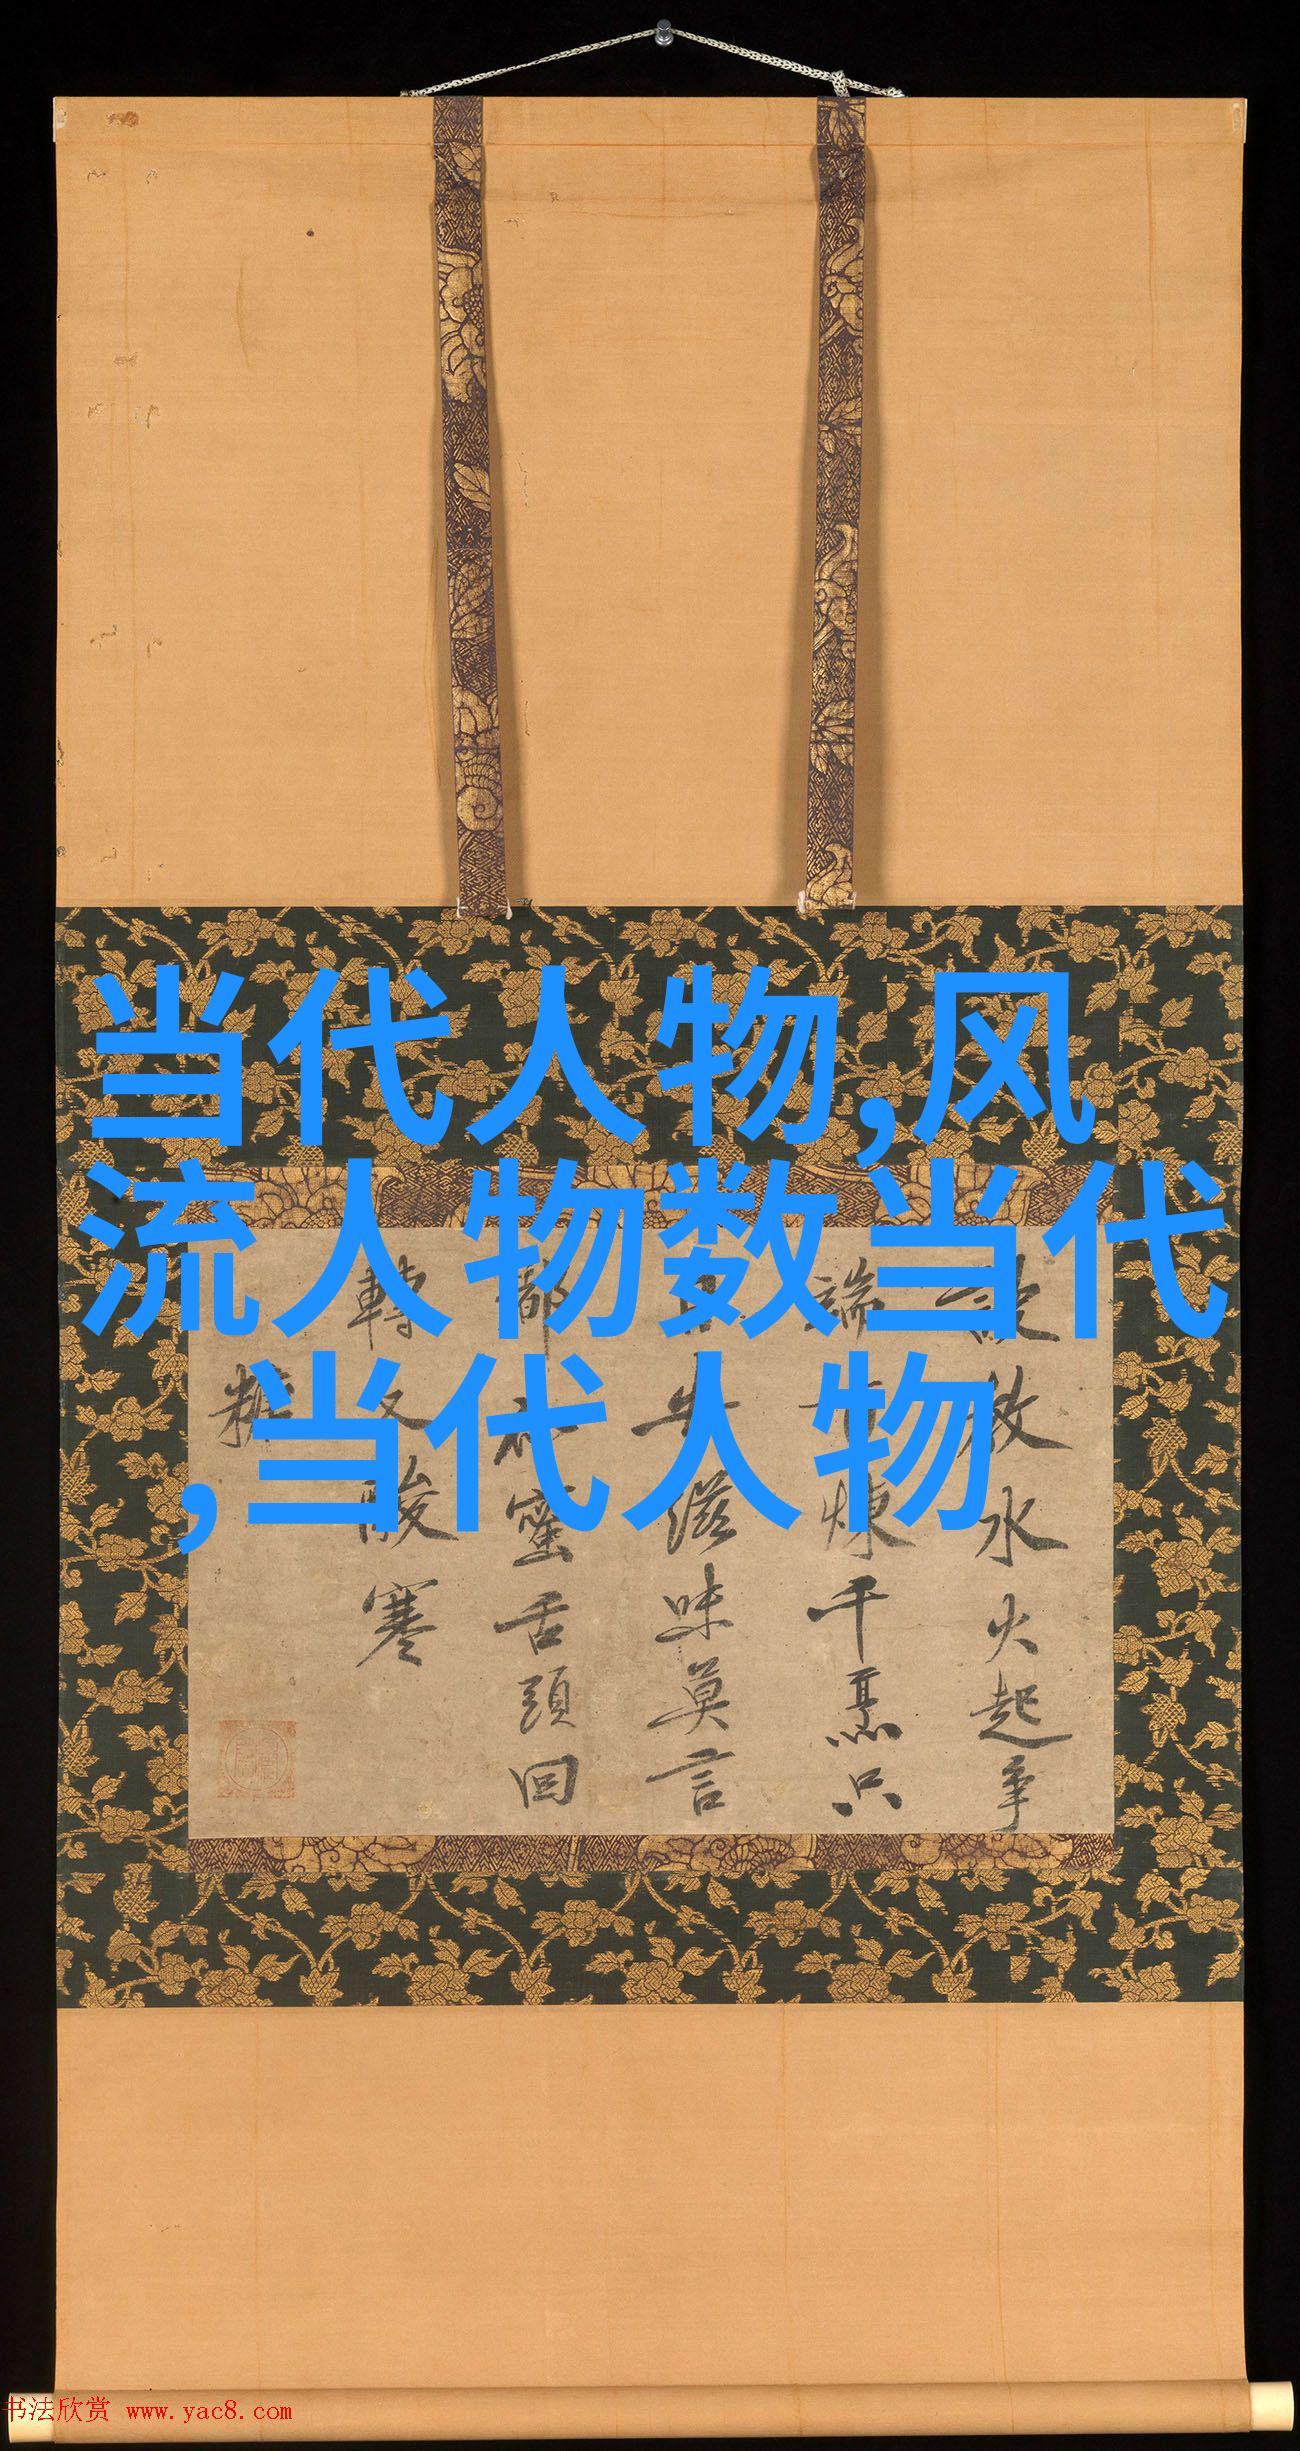 当代人物,风
流人物数当代
,当代人物
水火起争
煉千烹只
滋味莫言
蜜舌頭回
轉又酸寒
书法欣赏 www.yac8.com